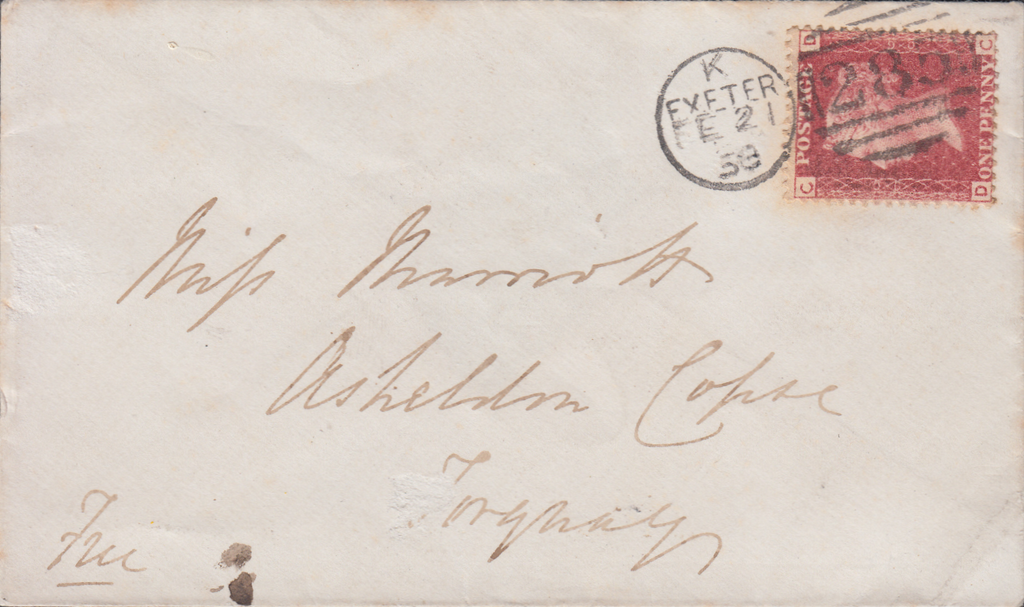 K
EXETER
FE 21
58
285
D C
POSTAGE
ONE PENNY
C D
Miss Marriott
Asheldon Copse
Torquay
Free